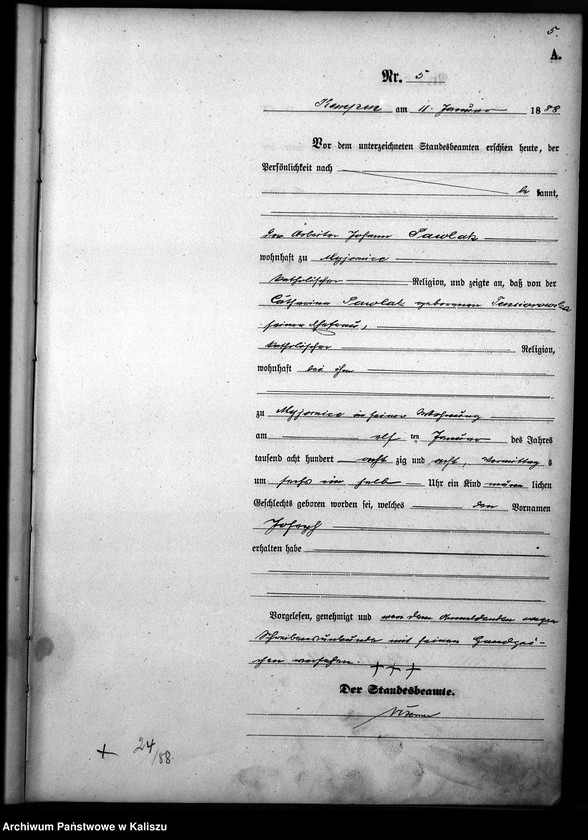 5.
A.
Nr. 5
Kempen am 11. Januar 1888
Vor dem unterzeichneten Standesbeamten erschien heute, der
Persönlichkeit nach
be kannt,
der Arbeiter Johann Pawlak
wohnhaft zu Myjomice
katholischer Religion, und zeigte an, daß von der
Catharina Pawlak geborenen
seiner Ehefrau,
katholischer Religion,
wohnhaft bei ihm
zu Myjomice in seiner Wohnung
am elf ten Januar des Jahres
tausend acht hundert acht zig und acht, Vormittag s
um sechs ein halb Uhr ein Kind männ lichen
Geschlechts geboren worden sei, welches den Vornamen
Joseph
erhalten habe
Vorgelesen, genehmigt und von dem Anmeldenden wegen
Schreibensunkunde mit seinen Handzei-
chen versehen. +++
Der Standesbeamte.
+ 24/88
Archiwum Państwowe w Kaliszu